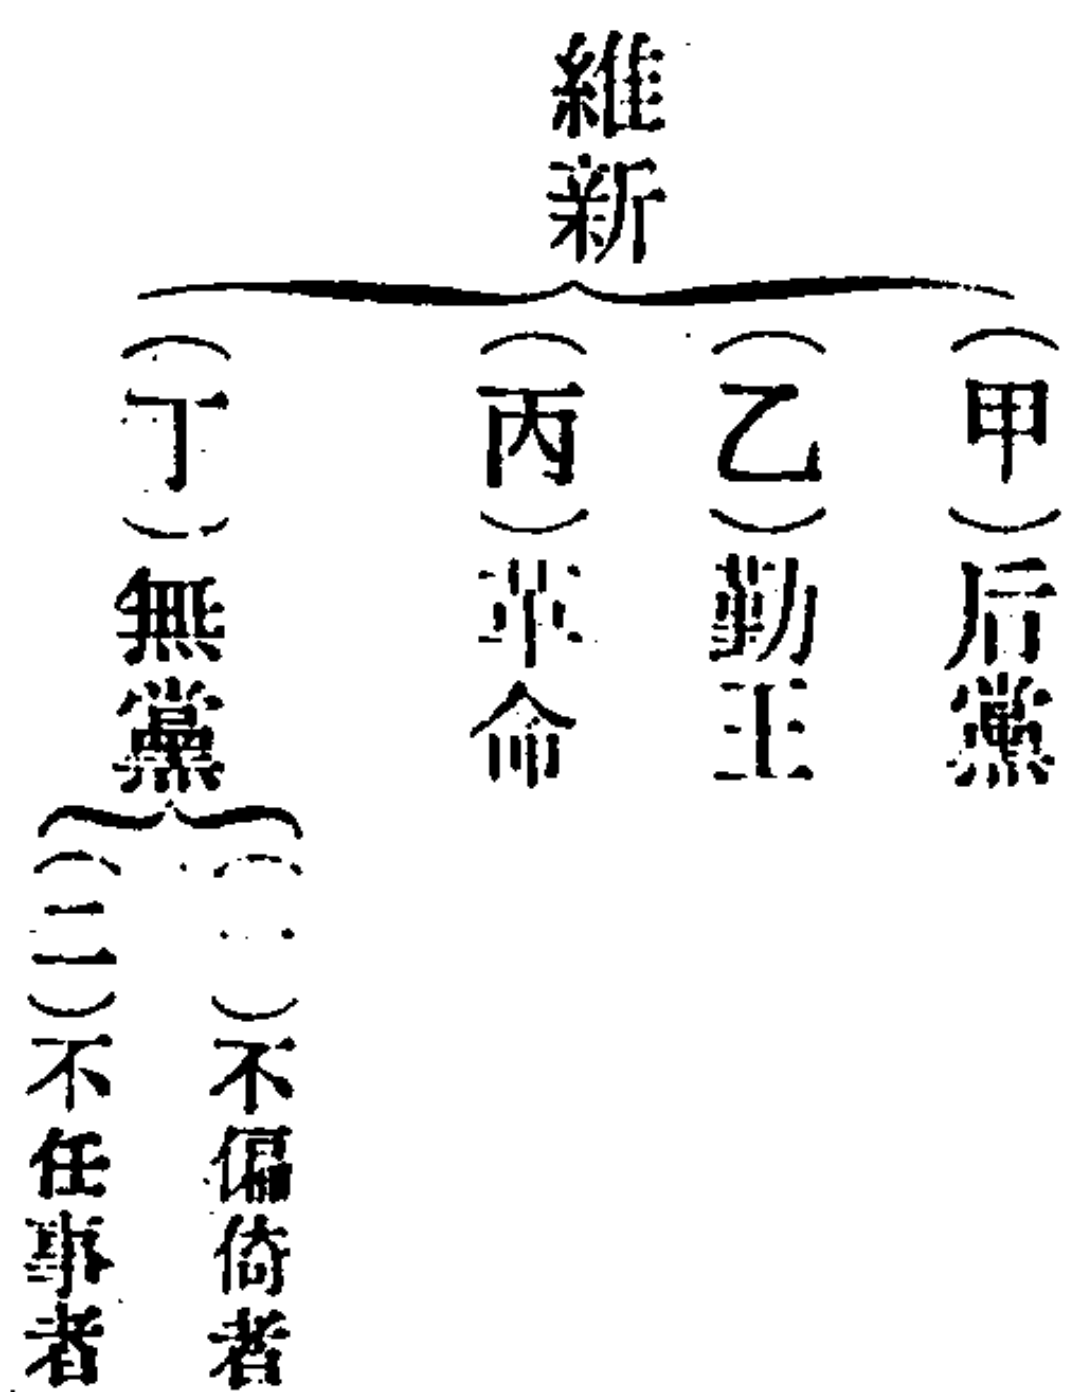 維新
(甲)后黨
(乙)勤王
(丙)革命
(丁)無黨
(一)不偏倚者
(二)不任事者